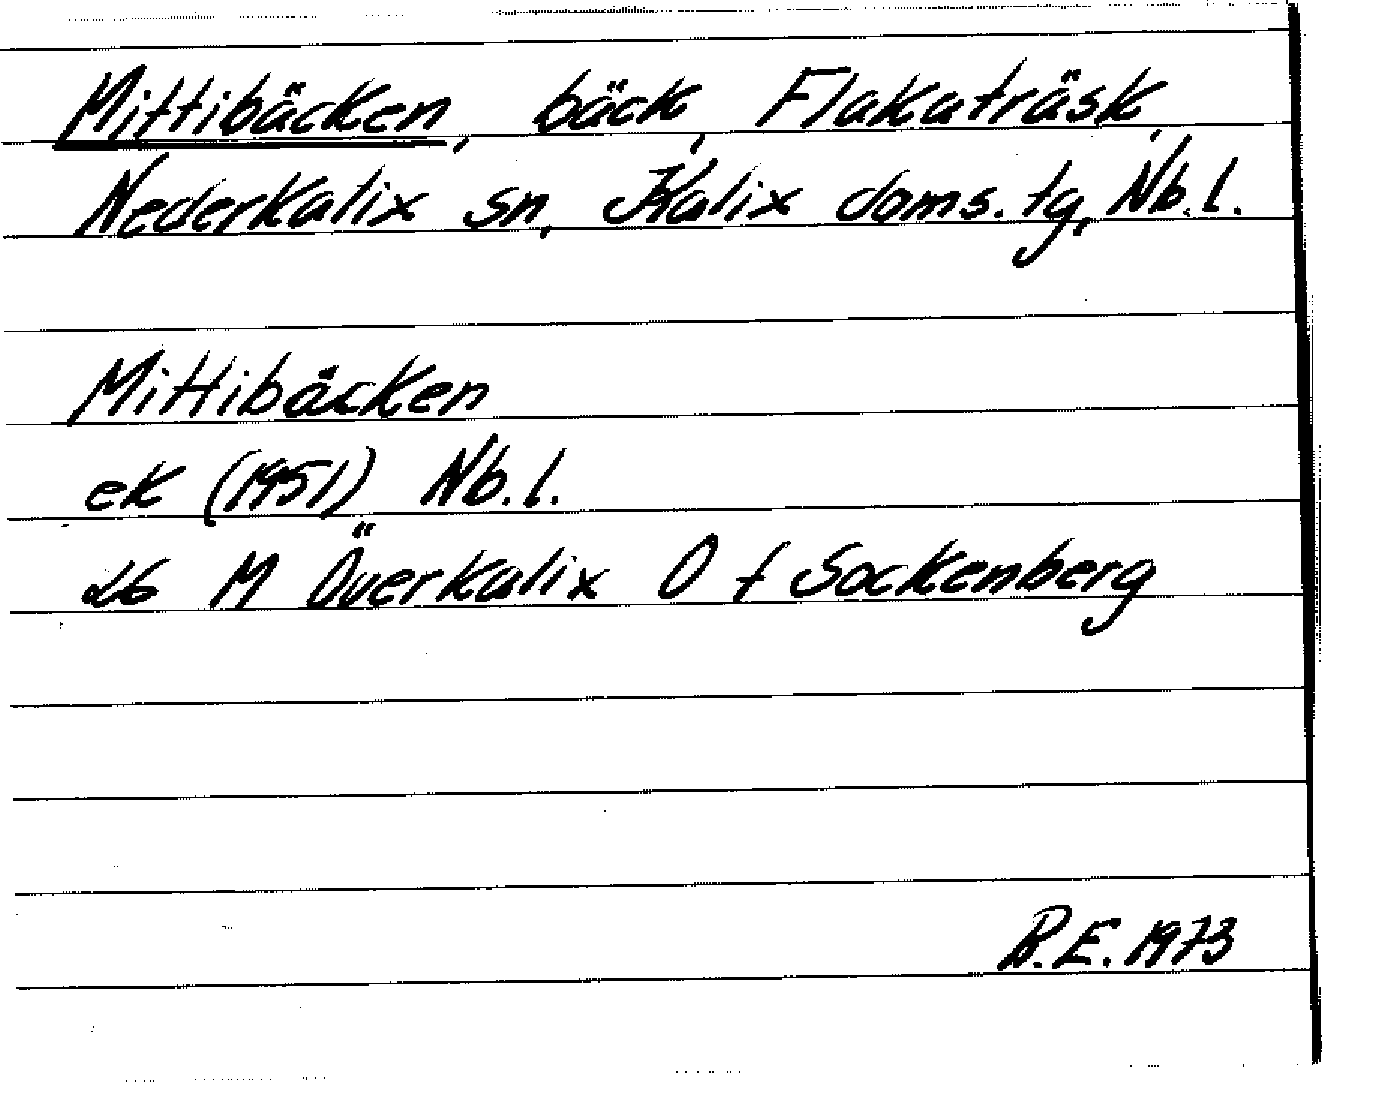 Mittibäcken, bäck, Flakaträsk,
Nederkalix sn, Kalix doms. tg, Nb. l.
Mittibäcken
ek (1951) Nb. l.
26 M Överkalix O f Sockenberg
B.E. 1973